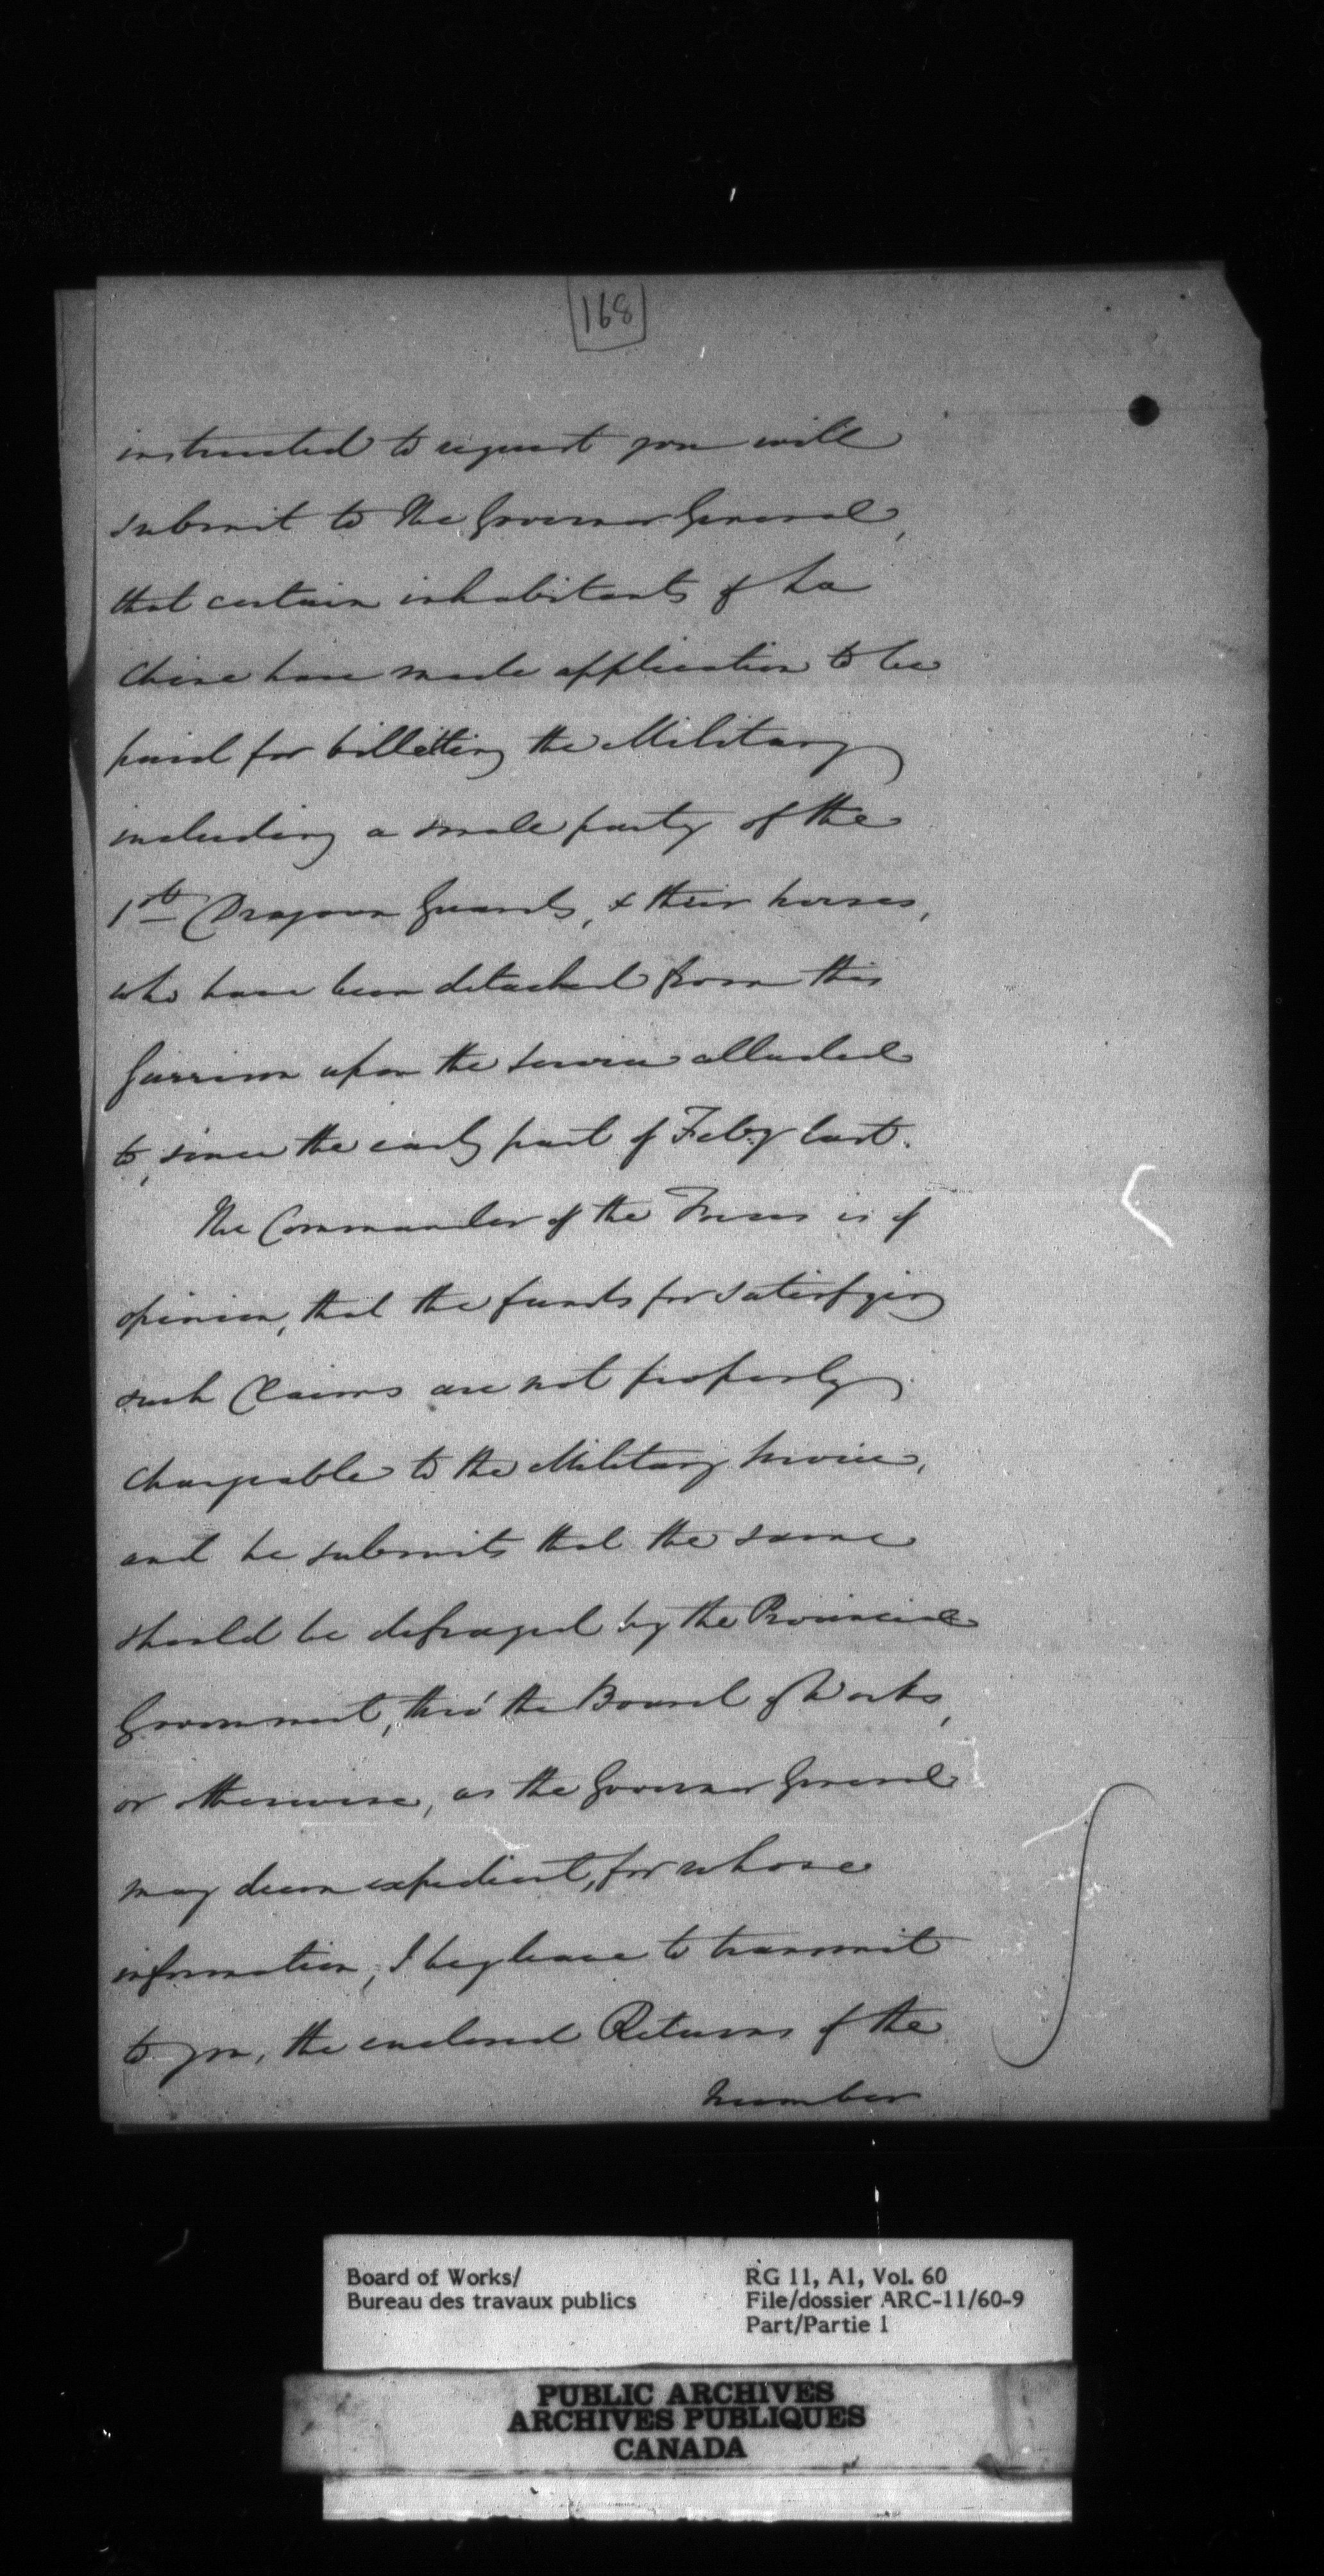 168
instructed to request you will
submit to The Governor General,
that certain inhabitants of La
Chine have made application to be
paid for billetting the Military
including a small party of the
1st Dragoon Guards, & their horses,
who have been detached from this
Garrison upon the service alluded
to, since the early part of Feby last.
The Commander of the Forces is of
opinion, that the funds for satisfying
such Claims are not properly
chargeable to the Military Service,
and he submits that the same
should be defrayed by the Provincial
Government, thro' the Board of Works,
or otherwise, as the Governor General
may deem expedient, for whose
information, I beg leave to transmit
to you, the enclosed Returns of the
number
Board of Works/
Bureau des travaux publics
RG 11, A1, Vol. 60
File/dossier ARC-11/60-9
Part/Partie 1
PUBLIC ARCHIVES
ARCHIVES PUBLIQUES
CANADA